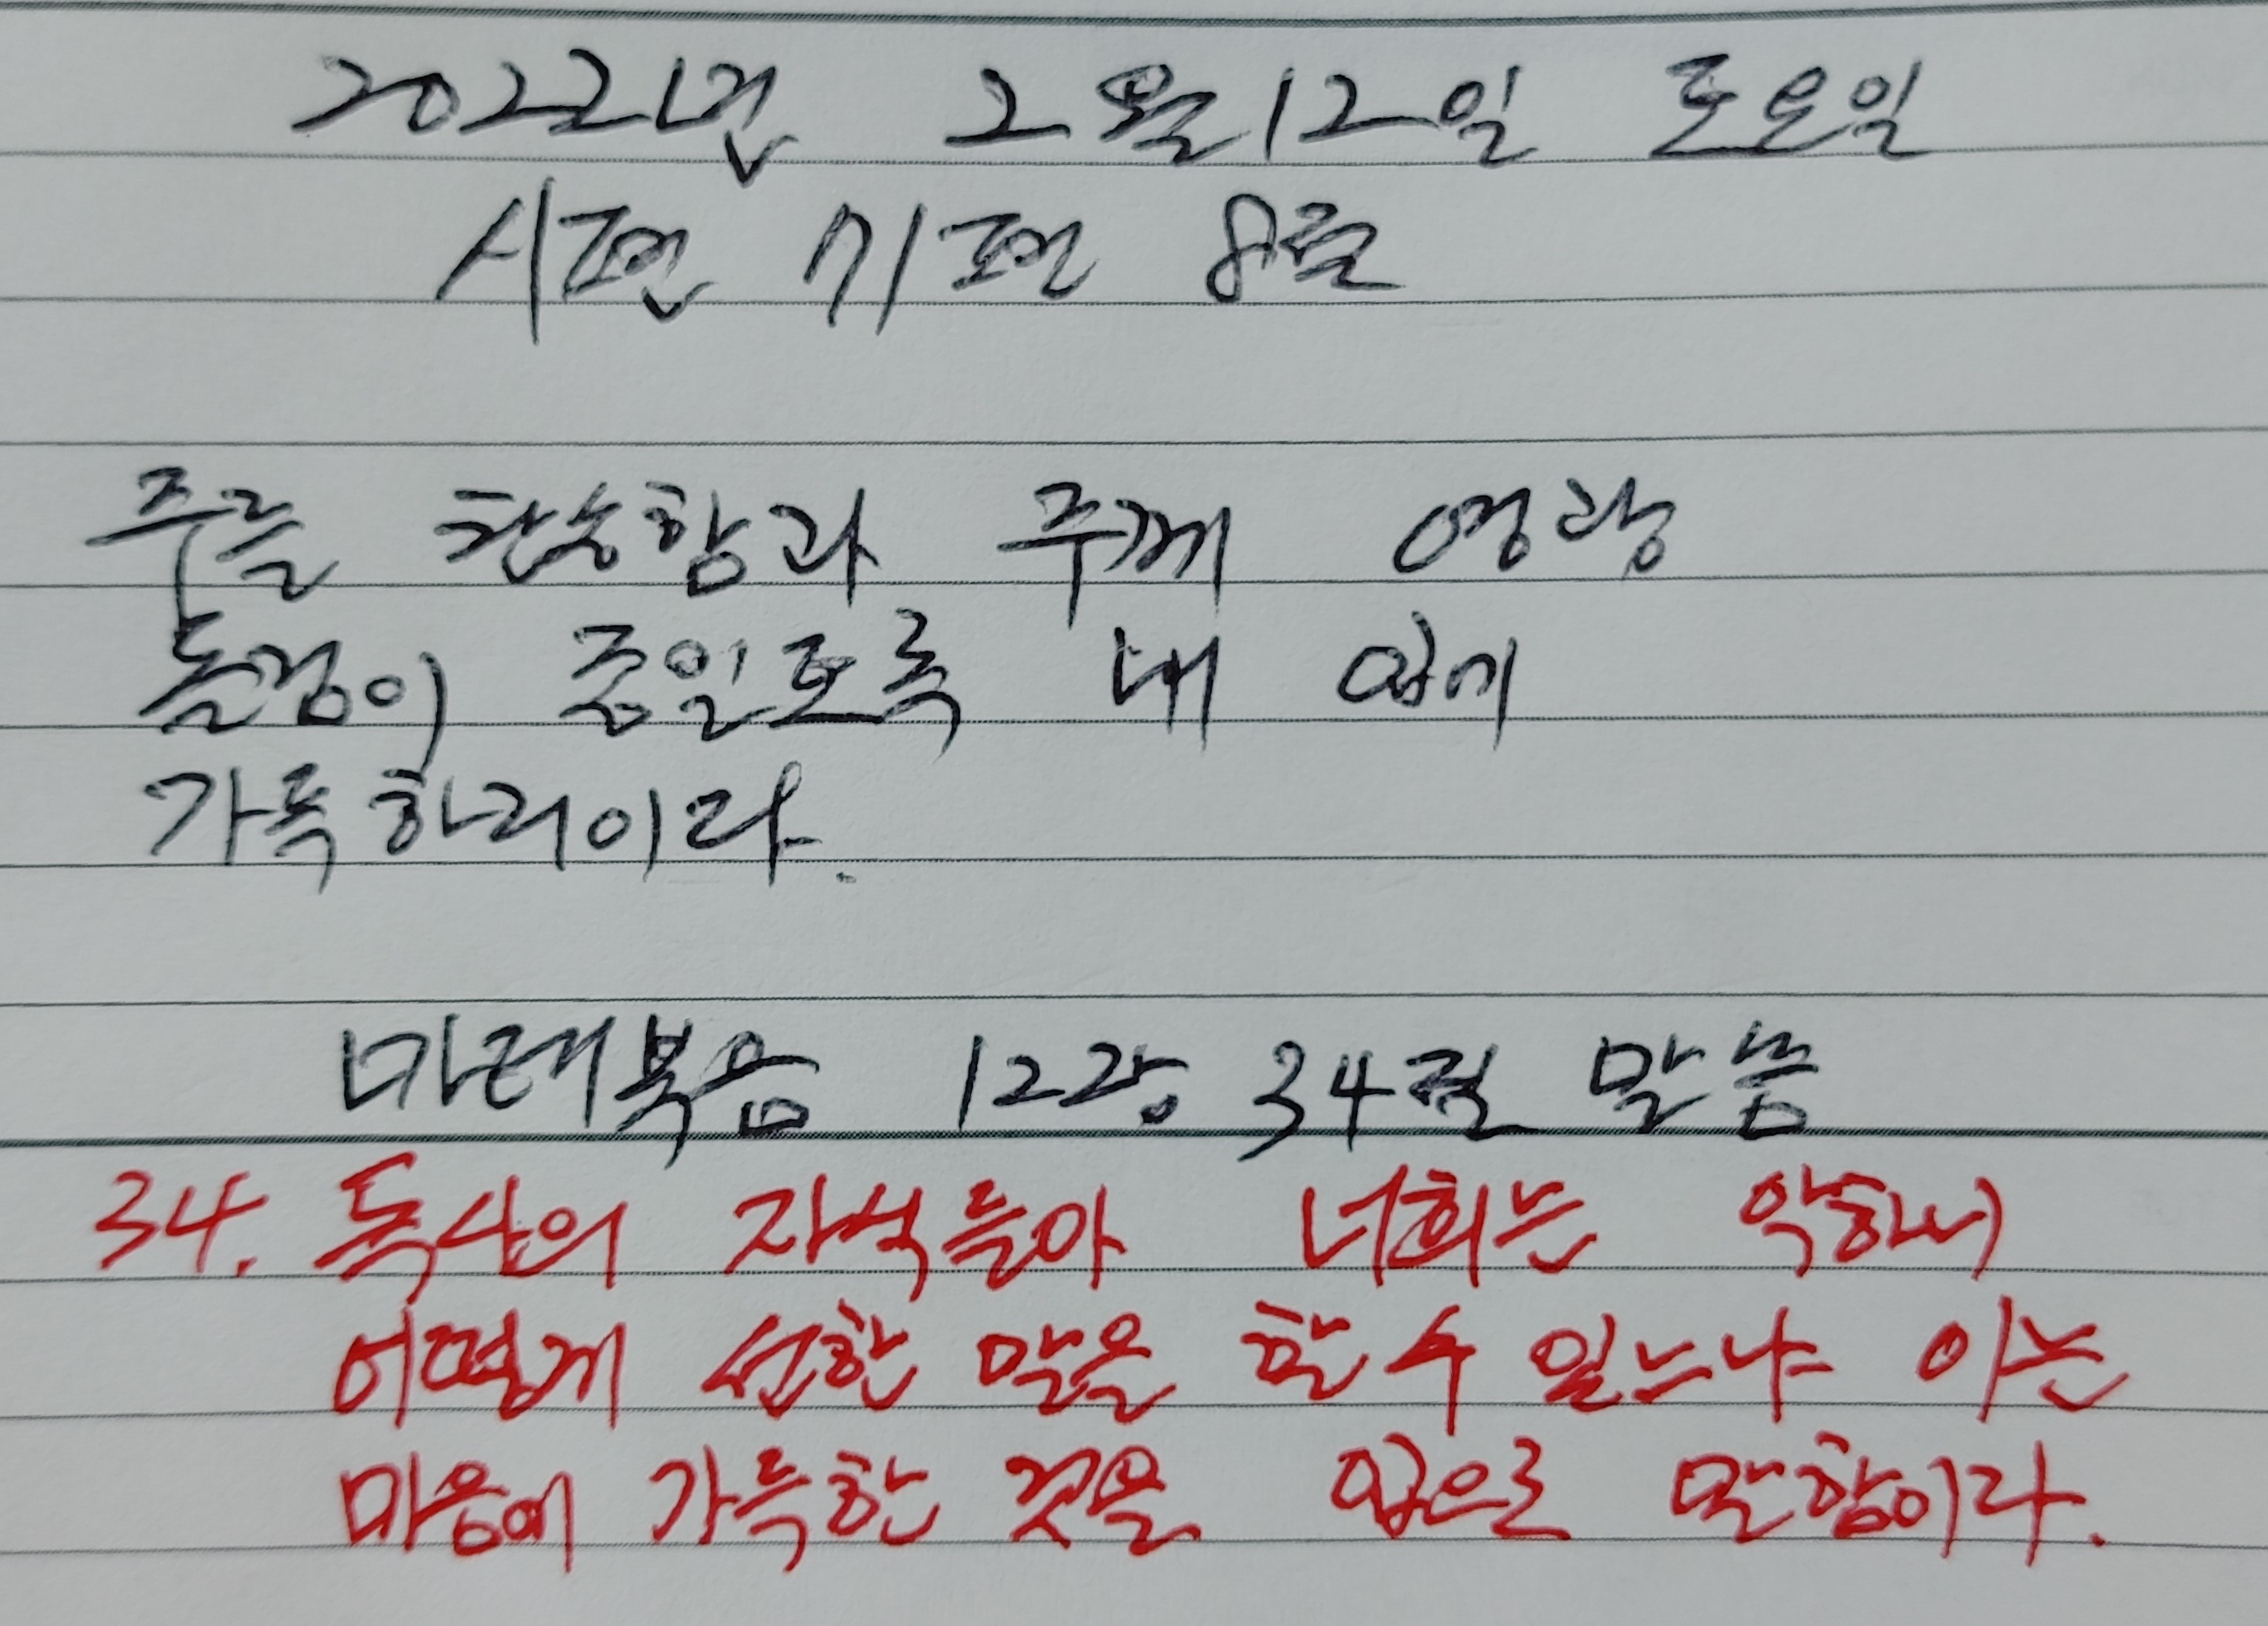 2022년 2월 12일 토요일
시편 71편 8절
주를 찬송함과 주께 영광
돌림이 종일토록 내 입에
가득하리이다.
마태복음 12장 34절 말씀
34. 독사의 자식들아 너희는 악하니
어떻게 선한 말을 할 수 있느냐 이는
마음에 가득한 것을 입으로 말함이라.